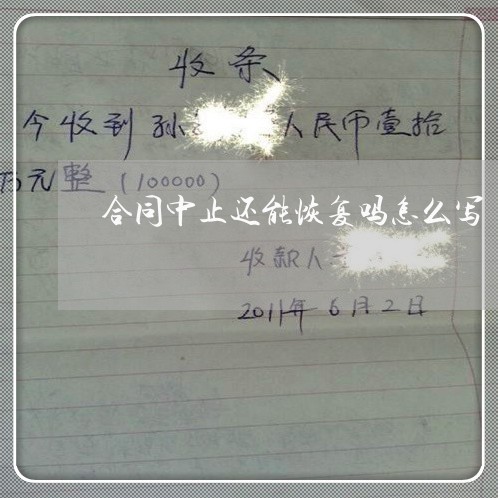 收条
今收到孙 人民币壹拾
万元整（100000）
合同中止还能恢复吗怎么写
收款人
2011年6月2日